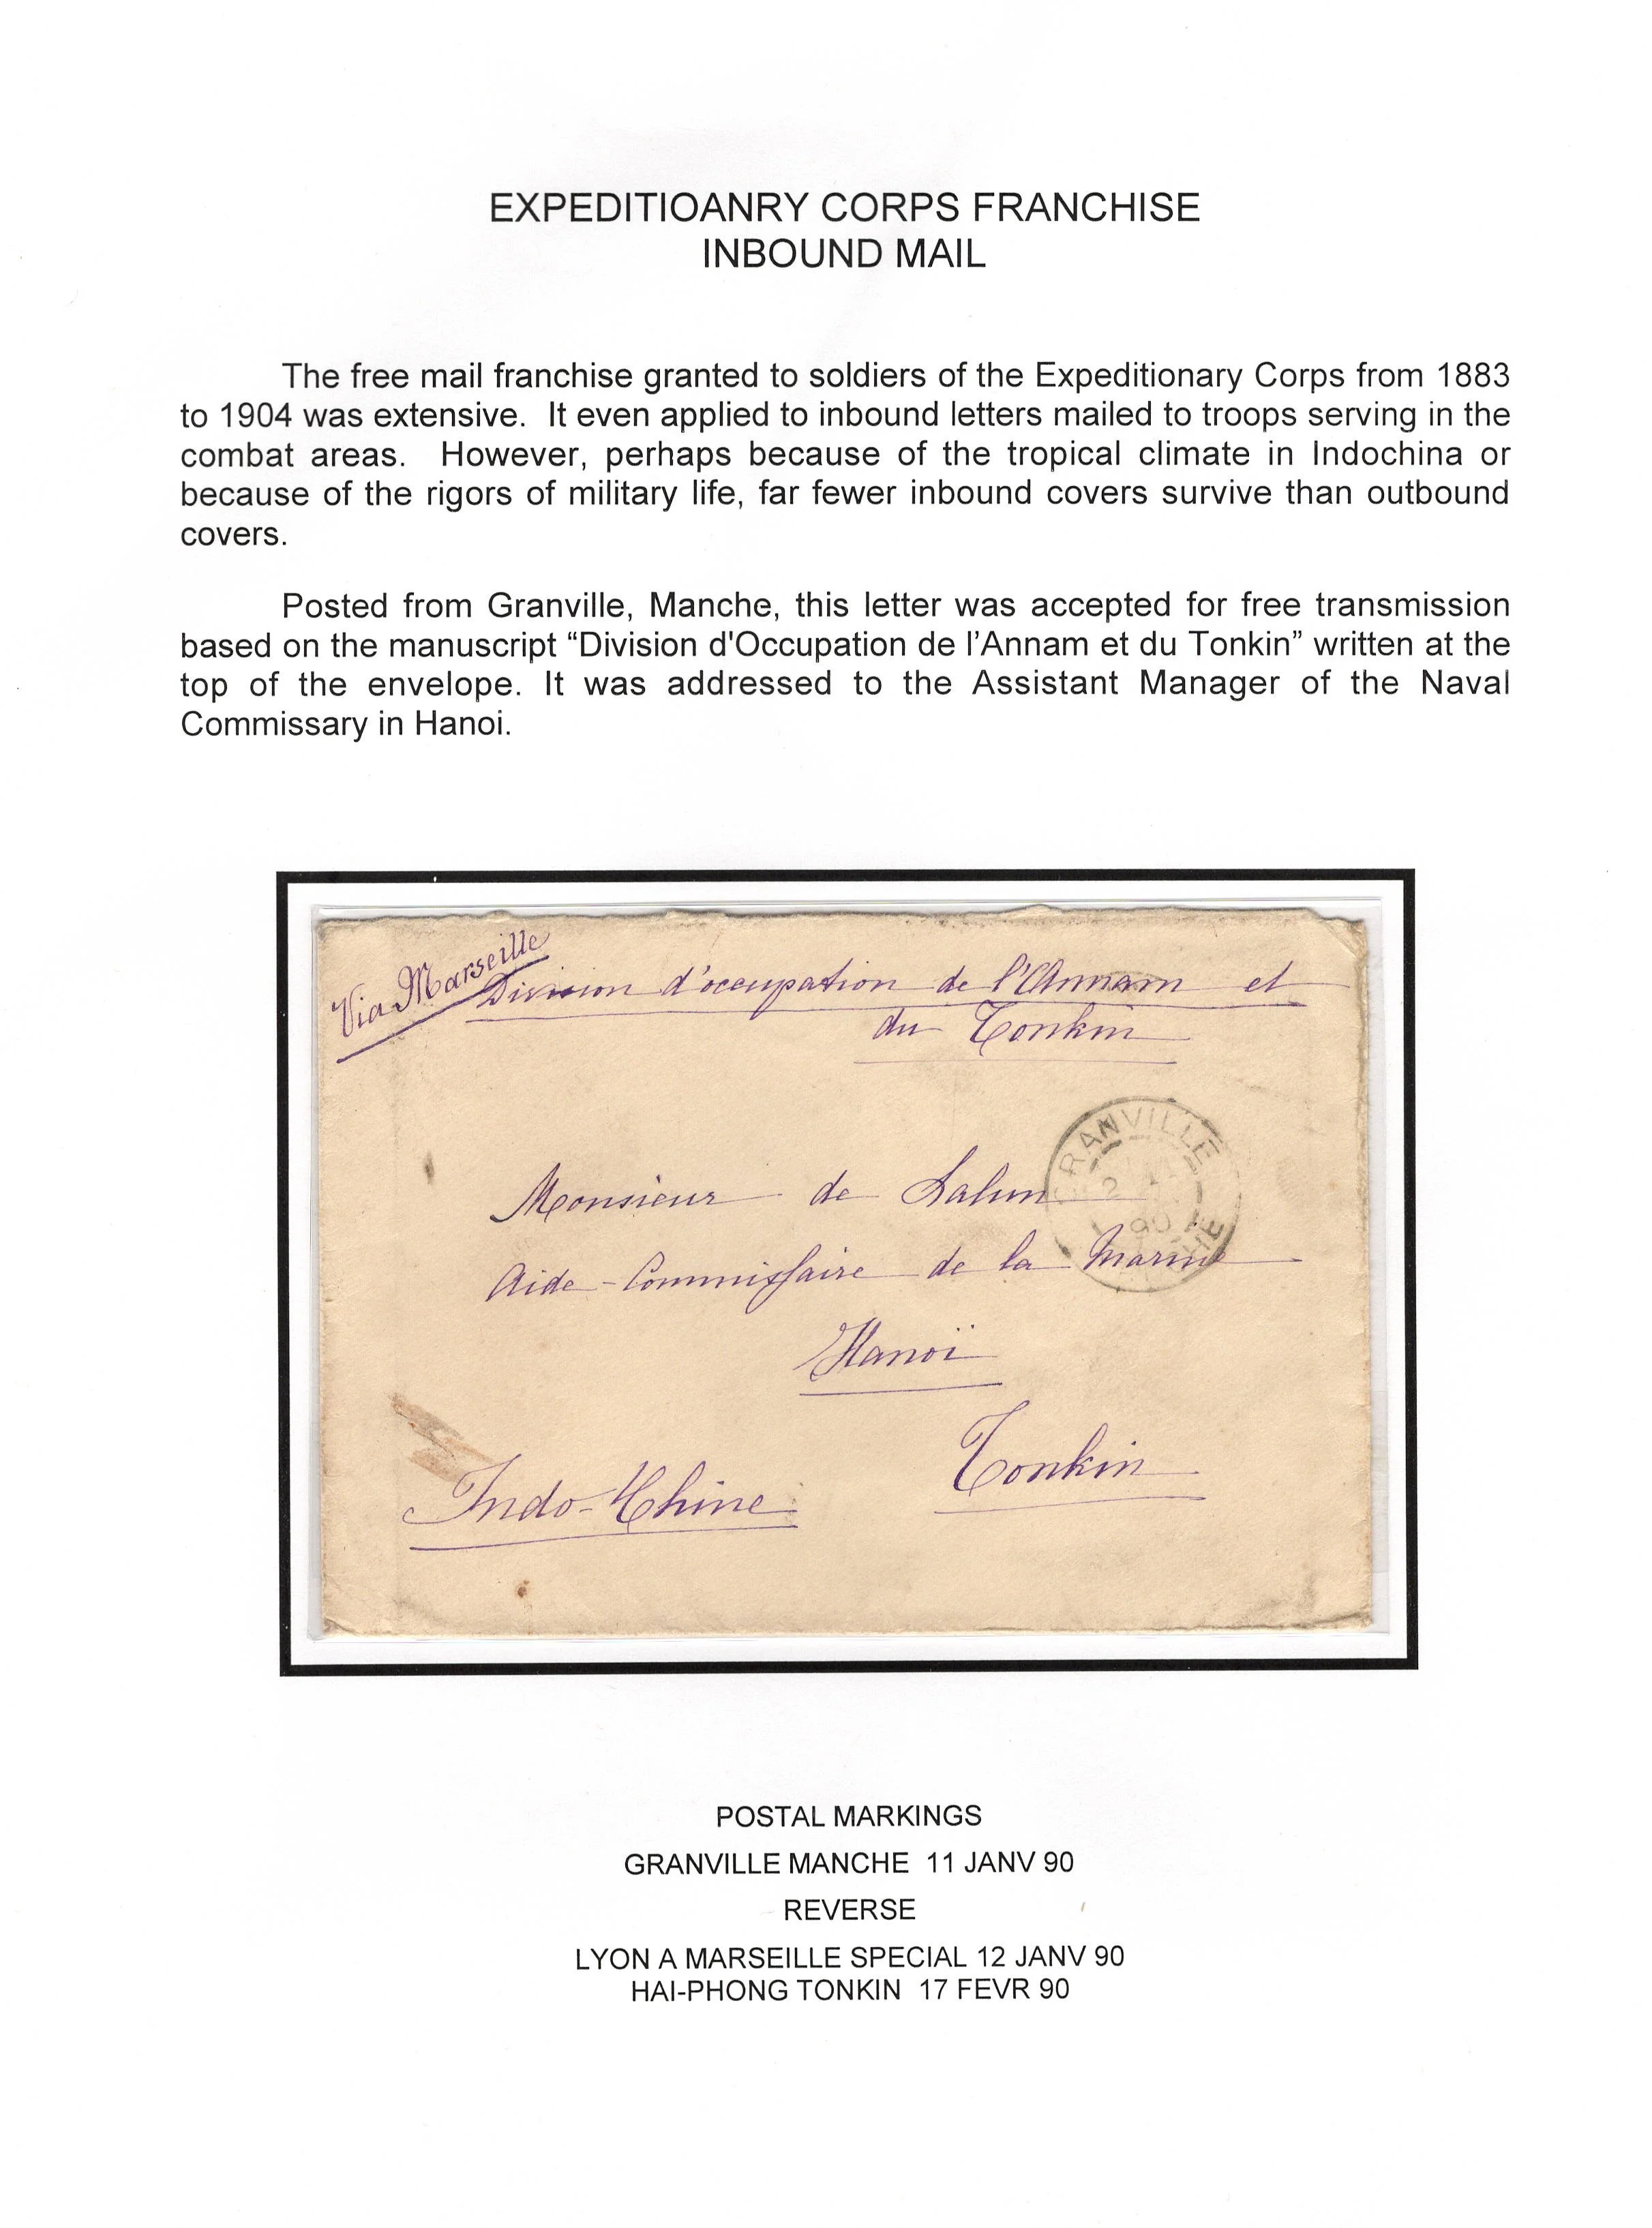 EXPEDITIOANRY CORPS FRANCHISE
INBOUND MAIL
The free mail franchise granted to soldiers of the Expeditionary Corps from 1883
to 1904 was extensive. It even applied to inbound letters mailed to troops serving in the
combat areas. However, perhaps because of the tropical climate in Indochina or
because of the rigors of military life, far fewer inbound covers survive than outbound
covers.
Posted from Granville, Manche, this letter was accepted for free transmission
based on the manuscript “Division d'Occupation de l’Annam et du Tonkin” written at the
top of the envelope. It was addressed to the Assistant Manager of the Naval
Commissary in Hanoi.
Via Marseille
Division d'occupation de l'Annam et
du Tonkin
GRANVILLE
90
Monsieur de
Aide-Commissaire de la Marine
Hanoï
Tonkin
Indo-Chine
POSTAL MARKINGS
GRANVILLE MANCHE 11 JANV 90
REVERSE
LYON A MARSEILLE SPECIAL 12 JANV 90
HAI-PHONG TONKIN 17 FEVR 90